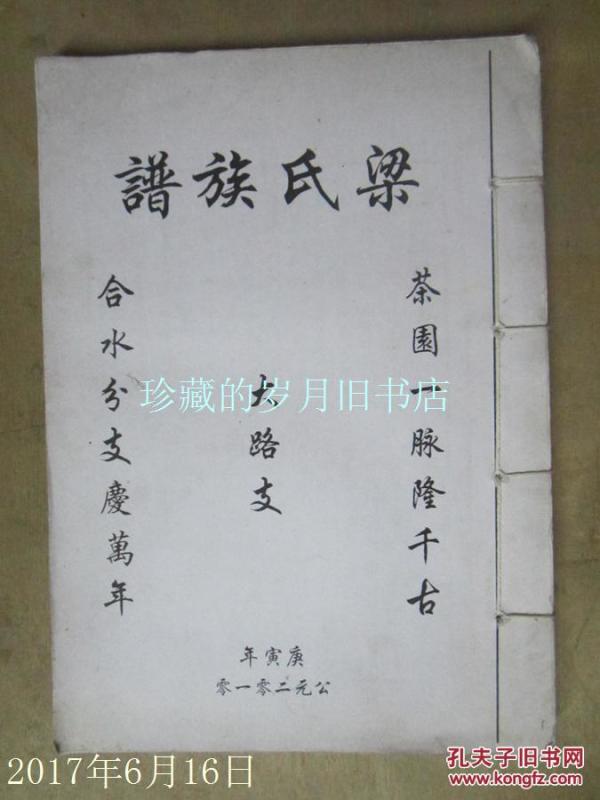 梁氏族譜
茶園一脉隆千古
大路支
合水分支慶萬年
庚寅年
公元二零一零
珍藏的岁月旧书店
2017年6月16日
孔夫子旧书网
www.kongfz.com